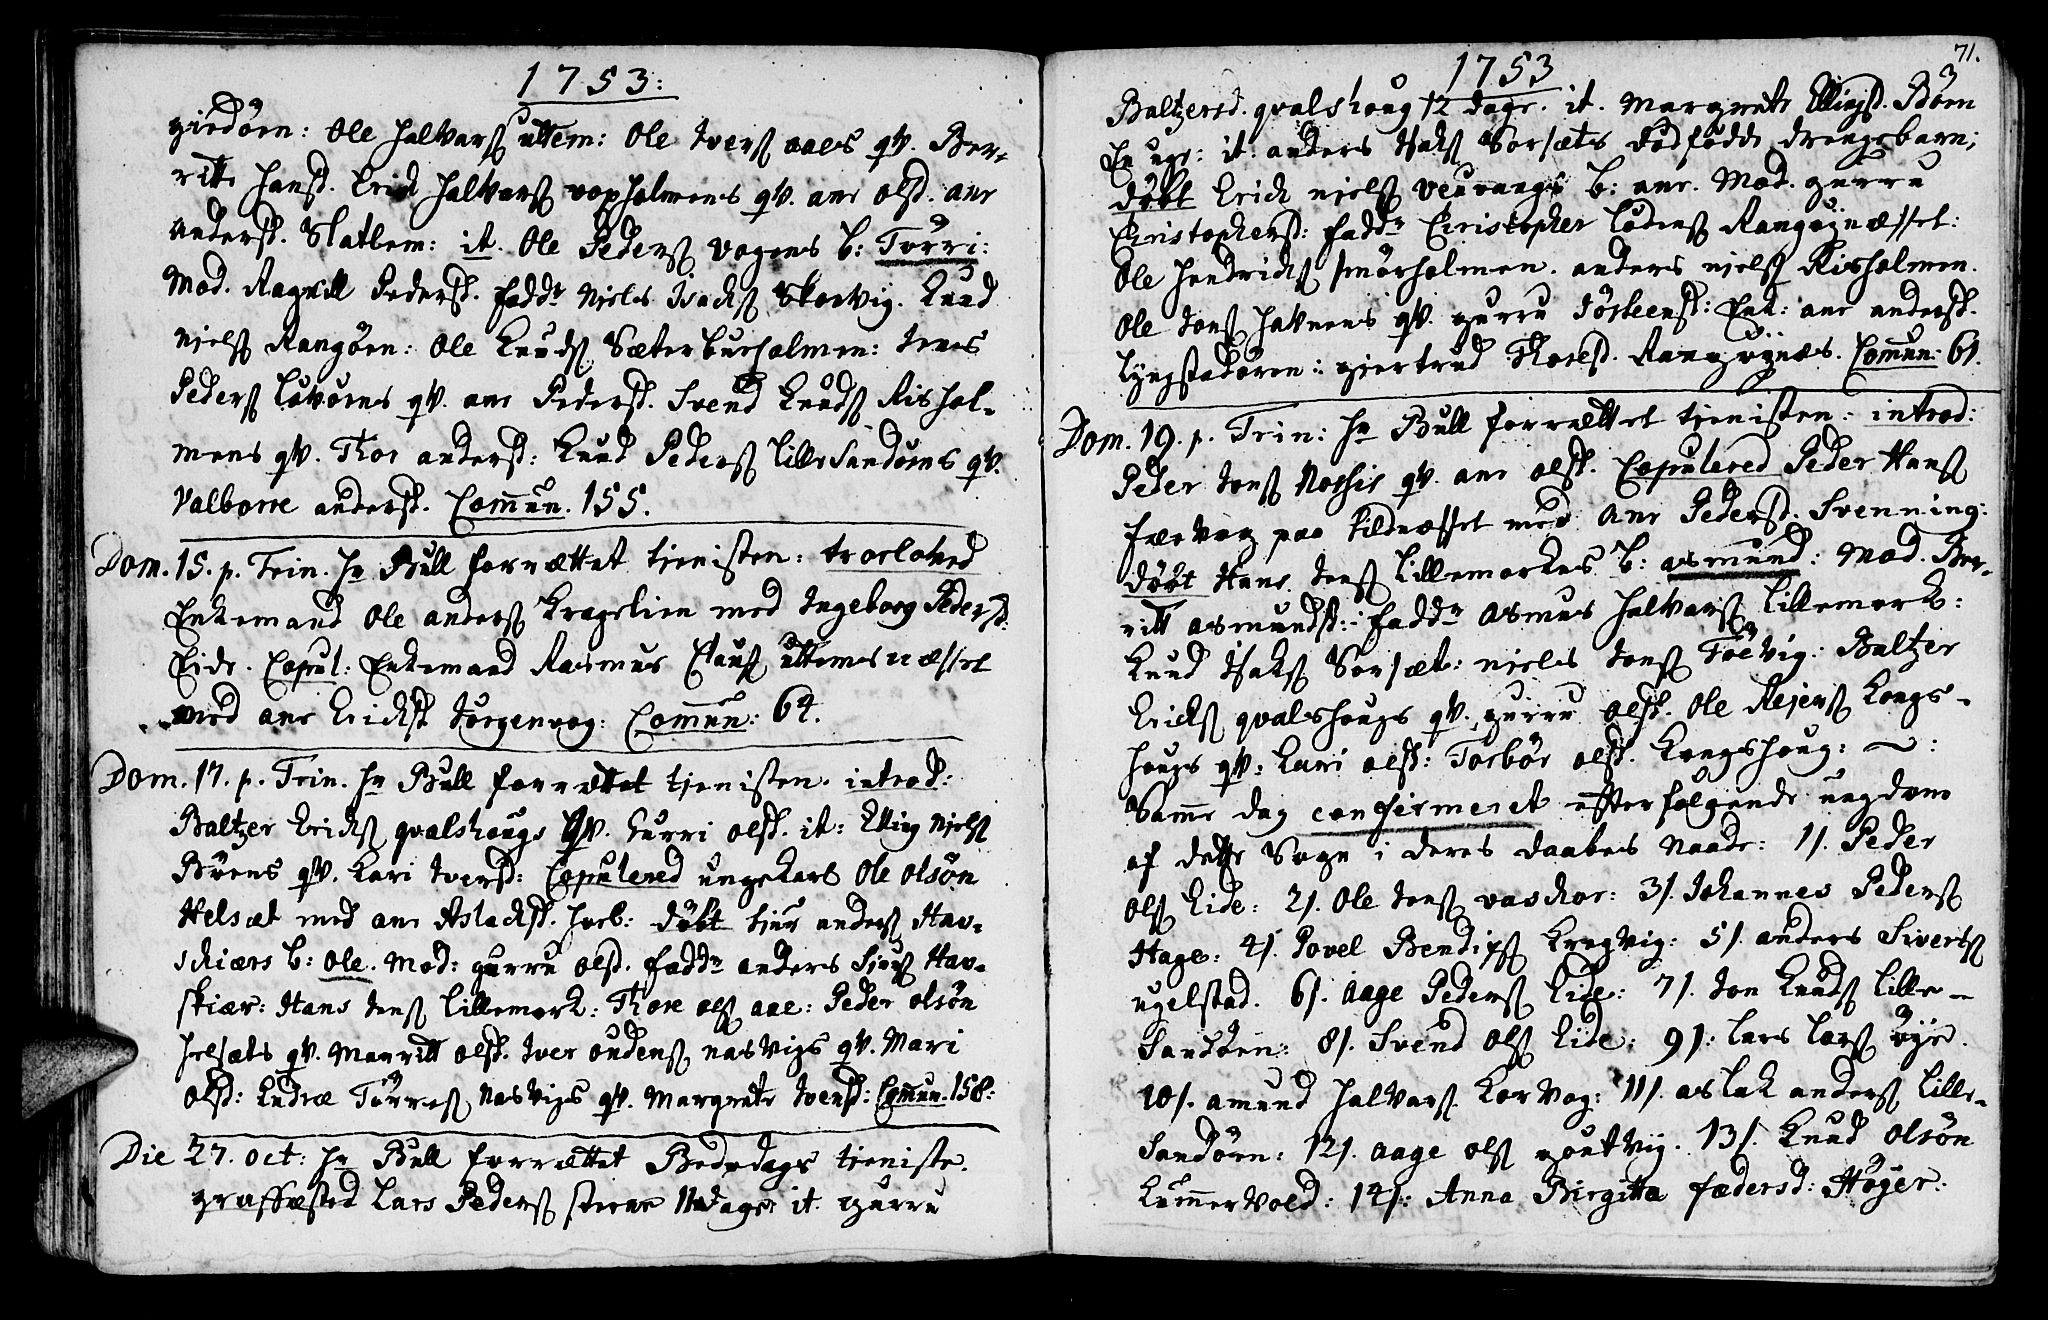 1753:
giedöen: Ole Halvars Uttem: Ole Ivers aaes qv. Ber-
ritte Hansd. Erick Halvars vopholmens qv. ane olsd. ane
andersd. Slatlem: it. Ole Peders vagens b: Torri:
Mod. Ragnill Pedersd. fadd Niels Isacks Skarvig. Knud
niels Rangöen: Ole Knuds Sæterburholmen: Jens
Peders Lövöens qv. ane Pedersd. Svend Knuds Rishol-
mens qv. Thoe andersd: Knud Peders lille Sandöens qv.
Valborre andersd. Comun. 155.
Dom. 15. p. Trin. Hr Bull forrættet tienisten: troeloved
Enkemand Ole anders Kragelien med Ingeborg Pedersd:
Eide. Copul: Enkemand Rasmus Claus uttemsnæsset
med ane Ericksd Jorgenvog: Comun: 64.
Dom. 17. p. Trin. Hr Bull forrættet tienisten. introd:
Baltzer Ericks qvalshougs qv. Kurri olsd. it: Elling Niels
Böens qv. Kari Iversd: Copulered ungekarl Ole olsön
Helsæt med ane Aslacksd. Horb: döbt Siur anders Hav-
skiærs b: Ole. Mod: gurru olsd. fadd anders Siurs Hav-
skiær: Hans Jens Lillemork: Thore ols aae: Peder olsön
Helsæts qv. Mauritt olsd. Iver oudens nasvigs qv. Mari
olsd: Endræ Törres Nasvigs qv. Margrete Iversd: Comun. 158:
Die 27. oct: Hr Bull forrættet Bededags tieniste.
graffæsted Lars Peders dage it. gurru
71.
1753
Baltzersd. qvalshoug 12 dage. it. Margrete Ellingsd. Böen
En uge: it: anders Isaks Sorsæts dödfödde drengebarn;
döbt Erick niels veuvangs b: ane. Mod. gurru
Christophersd: fadd Christopher Lodens Rangöynæsset:
Ole Hendricks smörholmen. anders niels Risholmen.
Ole Jons Havnens qv. gurru Törsteensd: Enk: ane andersd.
Lyngstadöeen: giertrud Thoresd. Rangöynæs. Comun: 61.
Dom. 19. p. Trin: Hr Bull forrættet tienisten: introd:
Peder Jens qv. ane olsd. Copulered Peder Hans
færvog paa Kildnæsset med Ane Pedersd. Svenning:
döbt Hans Jens Lillemorkes b: asmund: Mod. Ber-
ritt asmundsd: fadd Asmus Halvars Lillemork:
Knud Isaks Sorsæt: niels Jons Toevig: Baltzer
Ericks qvalshougs qv. gurru olsd. Ole Rejers Kongs-
hougs qv: Kari olsd: Torbör olsd. Kongshoug: ~:
Samme dag confirmeret efterfølgende ungdom
af dette Sogn i deres daabes Naade: 1/. Peder
Ols Eide: 2/. Ole Jons vaskor: 3/. Johannes Peders
Hage: 4/. Povel Bendixs Kragvig: 5/. anders Siverts
ugelstad. 6/. Aage Peders Eide: 7/. Jon Knuds Lille-
Sandöen: 8/. Svend Ols Eide: 9/: Lars Lars
10/. amund Halvars Korvog: 11/. aslak anders Lille-
Sandöen: 12/. aage ols goutvig. 13/. Knud olsön
Kummervold: 14/: Anna Birgitta fædersd: Höyer: